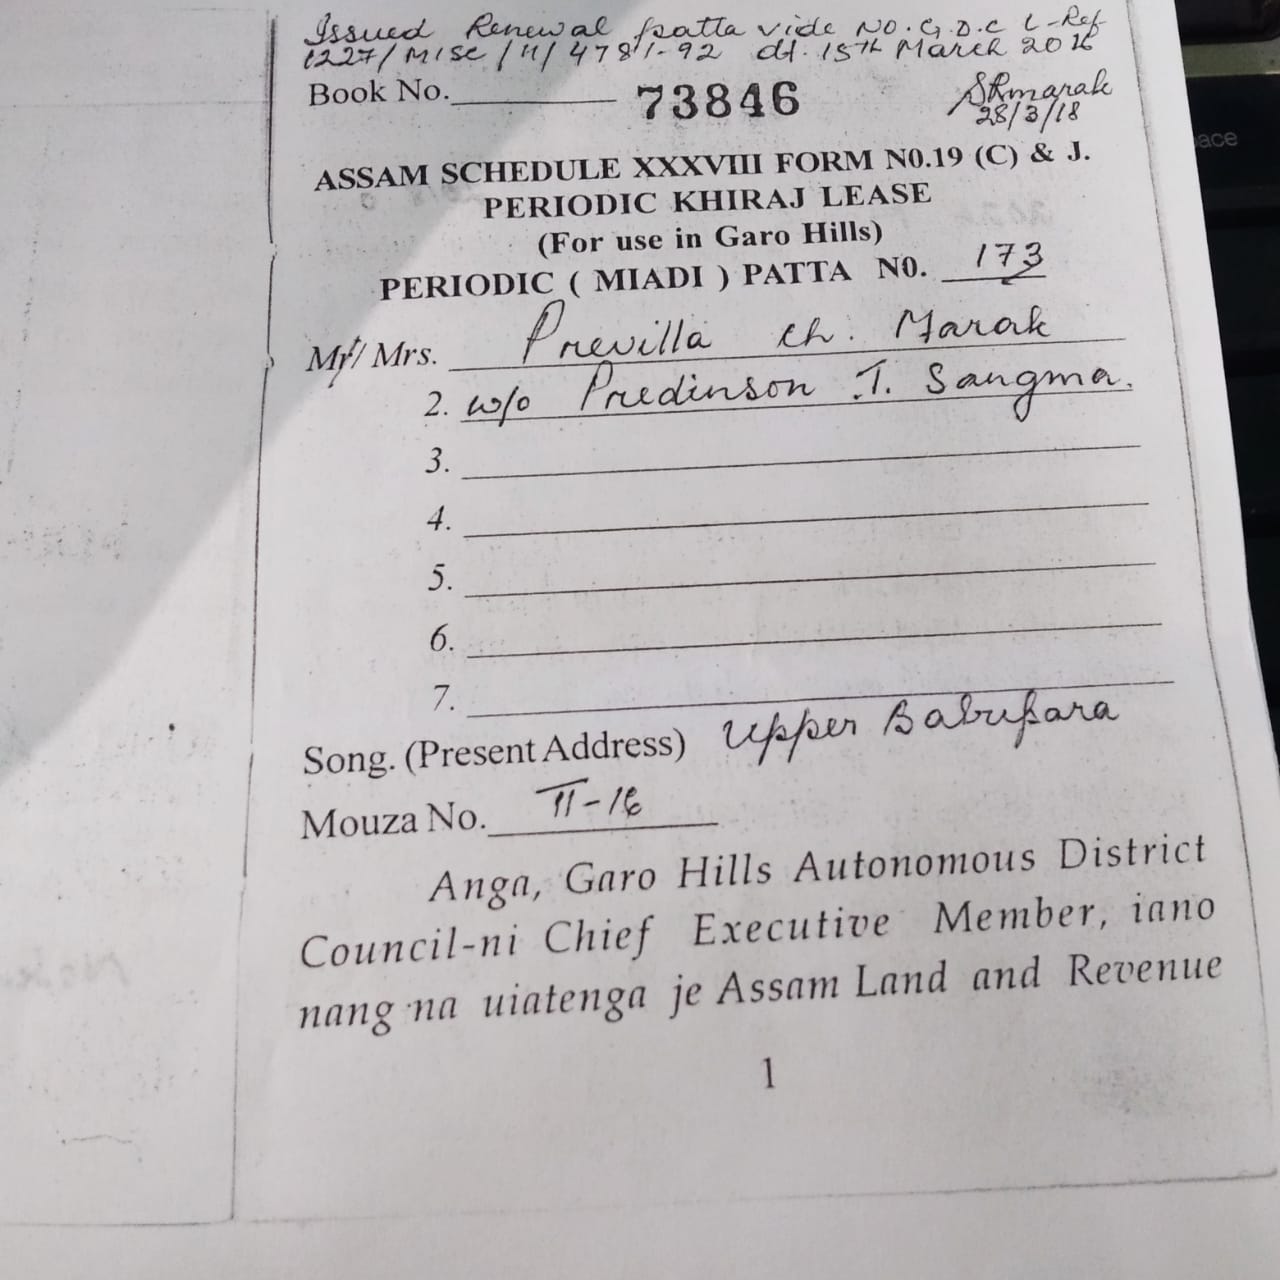 Issued Renewal patta vide NO. G.D.C L-Ref
1227/MISC/11/4781-92 dt. 15th March 2016
Book No. 73846
SRmarak
28/3/18
ASSAM SCHEDULE XXXVIII FORM N0.19 (C) & J.
PERIODIC KHIRAJ LEASE
(For use in Garo Hills)
PERIODIC ( MIADI ) PATTA N0. 173
Mr/ Mrs. Previlla Ch. Marak
2. w/o Predinson .T. Sangma.
3.
4.
5.
6.
7.
Song. (Present Address) Upper Babupara
Mouza No. II-16
Anga, Garo Hills Autonomous District
Council-ni Chief Executive Member, iano
nang·na uiatenga je Assam Land and Revenue
1